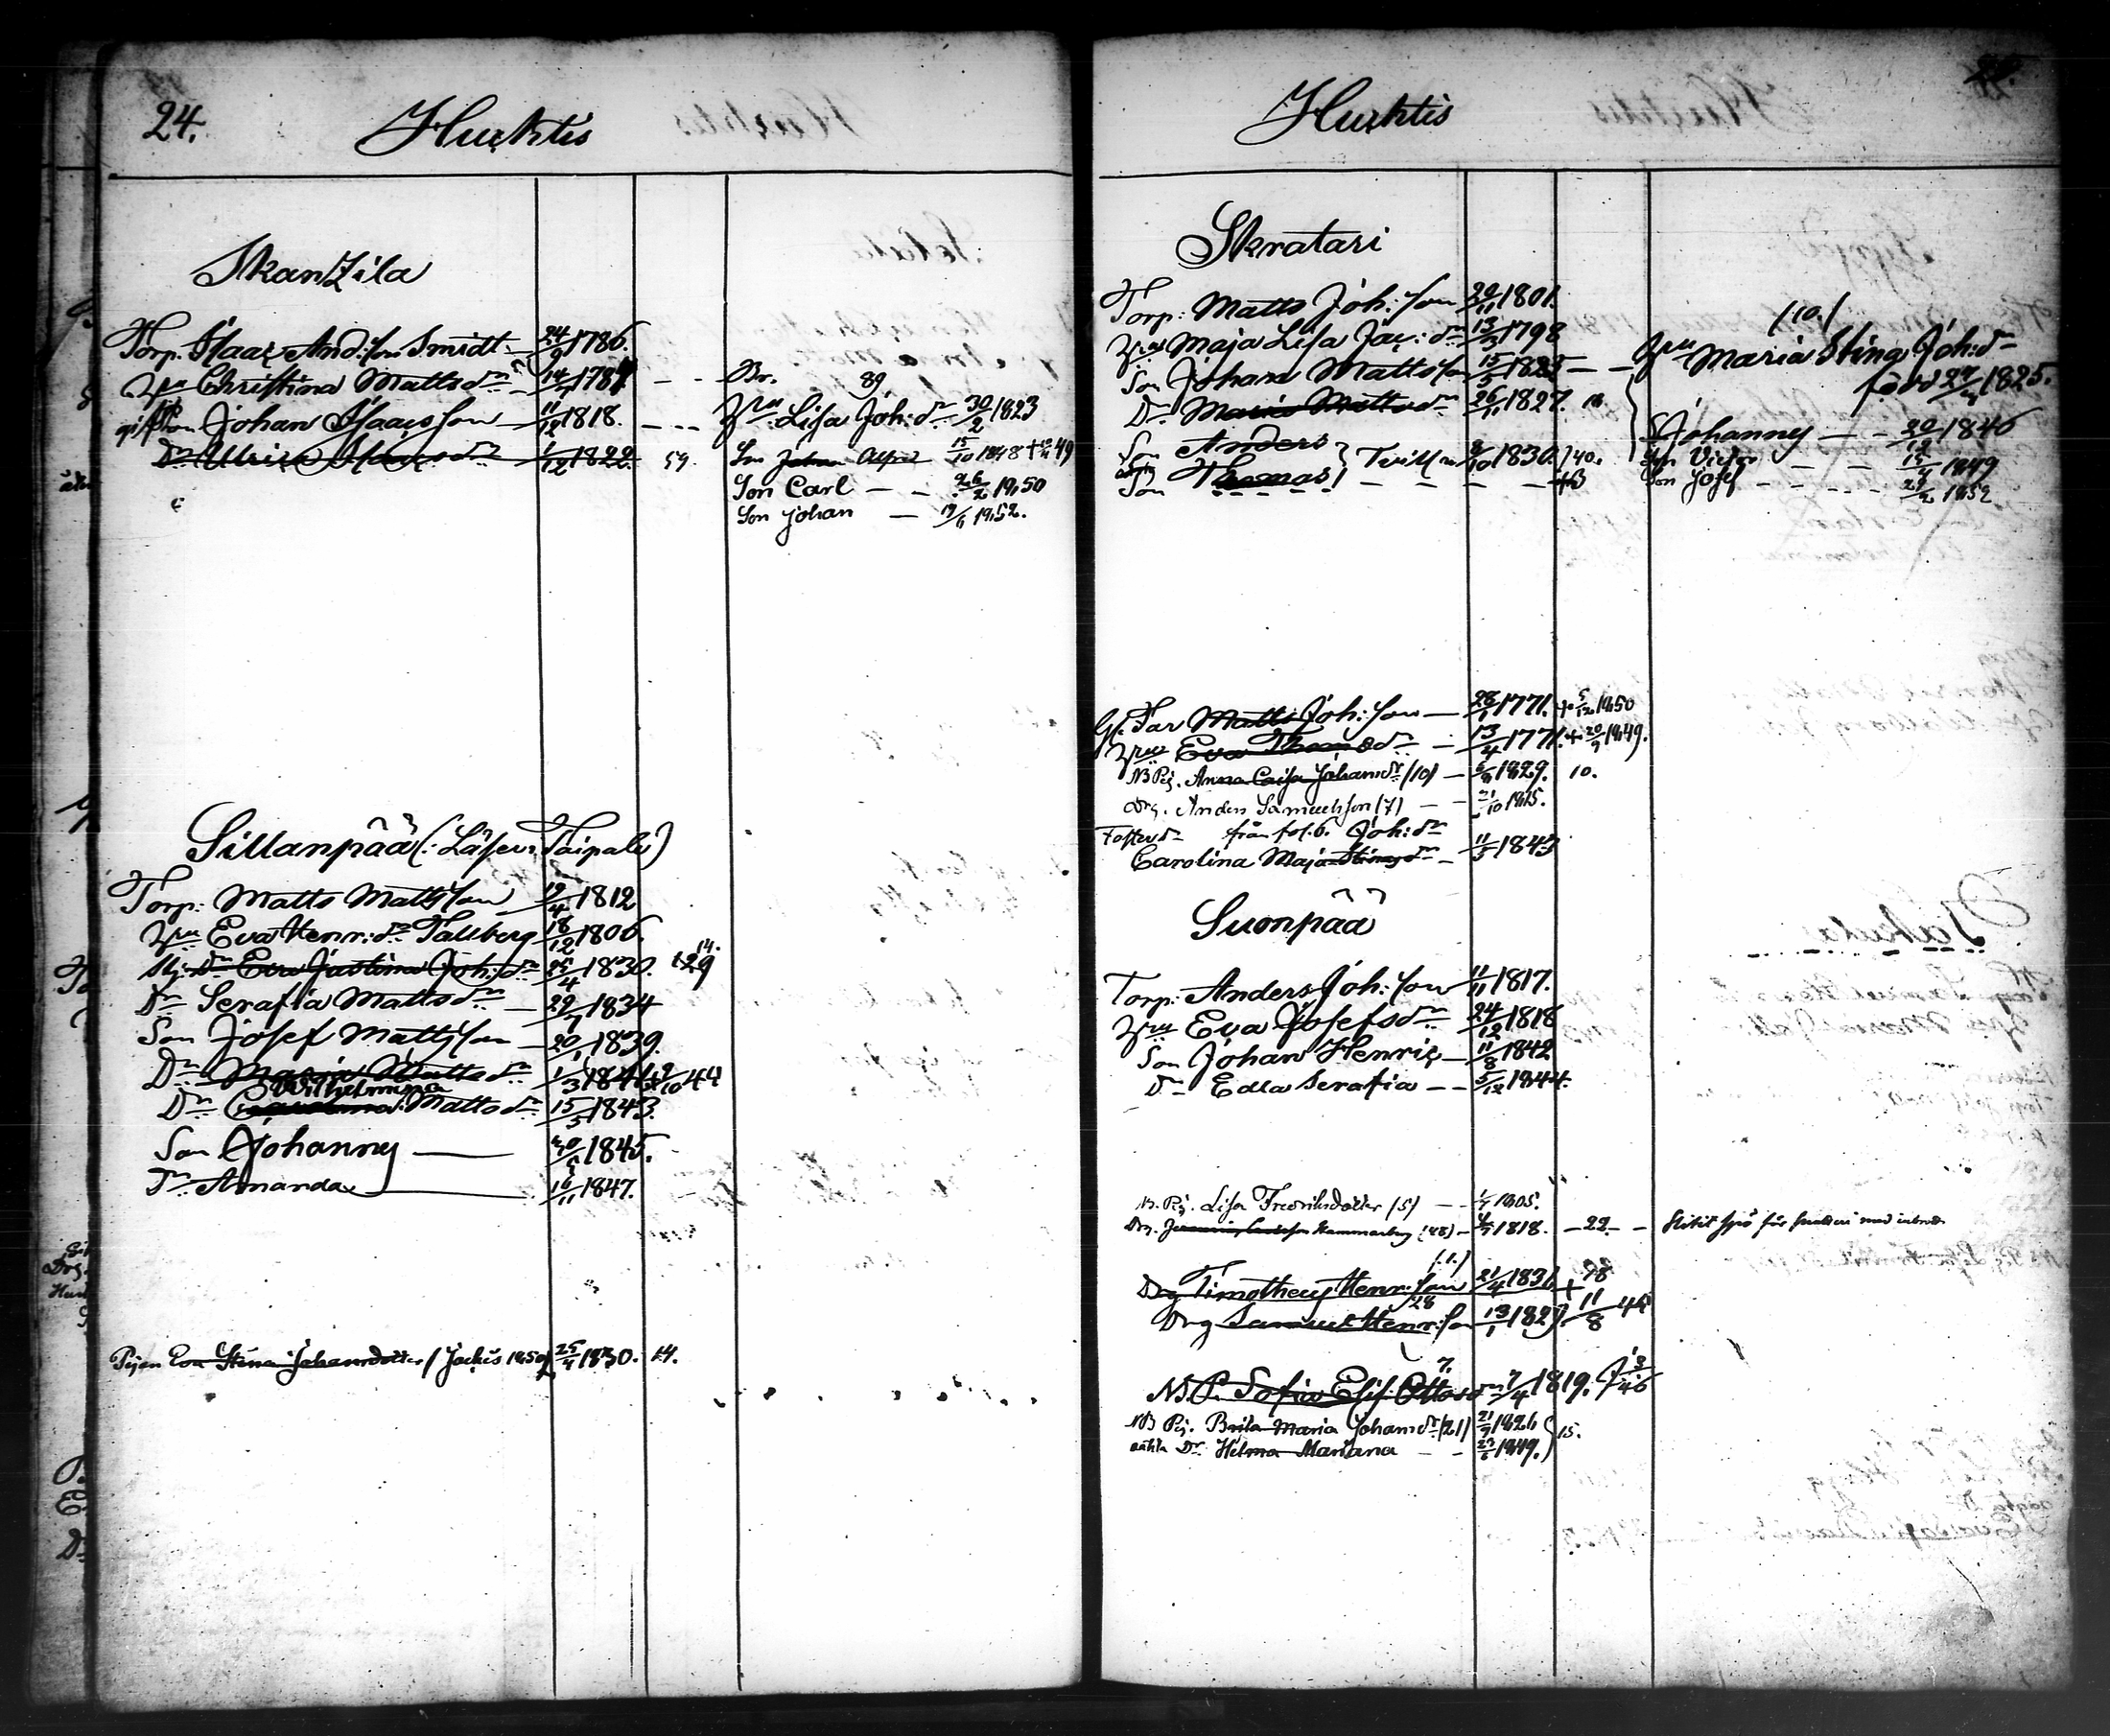 24.
Hurktis
Skanzila
Torp. Isaac And:son Smidt 24/9 1786.
Hru Christina Mattsdr 14/7 1787 - - Br. 89
gift son Johan Isaacsson 11/12 1818. - - - Hru Lisa Joh:dr 30/2 1823
Dr Ulrica Isacsdr 1/12 1822 59. Son Johan Alfred 15/10 1848 + 49
Son Carl - - 26/2 1850
Son Johan - 19/6 1852.
Sillanpää (: Läsen: Taipale)
Torp: Matts Mattsson 19/4 1812
Hru Eva Henr:dr Tallberg 18/12 1806.
Dr Eva Justina Joh:dr 25/4 1830. 14. 29
Dr Serafia Mattsdr 29/7 1834
Son Josef Mattsson 20/1 1839.
Dr Maria Mattsdr 1/3 1841 + 2/10 44
Wilhelmina
Dr Carolina Mattsdr 15/5 1843.
Son Johannes 30/5 1845.
Dr Amanda 16/11 1847.
Pigan Eva Stina Johansdotter (Jockis 1850) 25/4 1830. 14.
Hurktis
Skratari
Torp: Matts Joh:son 20/11 1801.
Hru Maja Lisa Jac:dr 13/3 1798 /10./
Son Johan Mattsson 15/5 1825 - - Hru Maria Stina Joh:dr
född 27/4 1825.
Dr Maria Mattsdr 26/11 1827. 18
Son Anders } Twill 8/10 1830. } 40. Johannes - - 20/12 1846
Son Victor - - 15/4 1849
Son Thomas - - - - Son Josef - - - - 29/2 1852
Gl. Far Matts Joh:son - 28/1 1771. + 5/12 1850
Hru Eva Thomsdr - 13/4 1771. + 20/9 1849.
NB Pig. Anna Caisa Johansdr (10) - 6/9 1829. 10.
Drg. Anders Samuelsson (7) - - 21/10 1815.
Fosterdr från fol. 6. Joh:dr
Carolina Maja Stinasdr - 11/5 1843
Suonpää
Torp: Anders Joh:son 11/11 1817.
Hru Eva Josefsdr 24/12 1818
Son Johan Henric - 11/8 1842
Dr Edla Serafia - - 5/12 1844.
Pig. Lisa Fredriksdotter (5) - - 1/7 1805.
Drg. Hammarberg (48) - 1818. - 22. -
(1.)
Drg Timotheus Henr:son 21/4 1831 + 18
28
Drg Samuel Henr:son 13/1 1827. 11/8 45
7.
NB. P. Sofia Elis: Ottosdr 7/4 1819. 13/46
NB Pig. Brita Maria Johansdr (21) 21/9 1826 } 15.
oäkta Dr Helma Mariana - - 23/6 1849. }